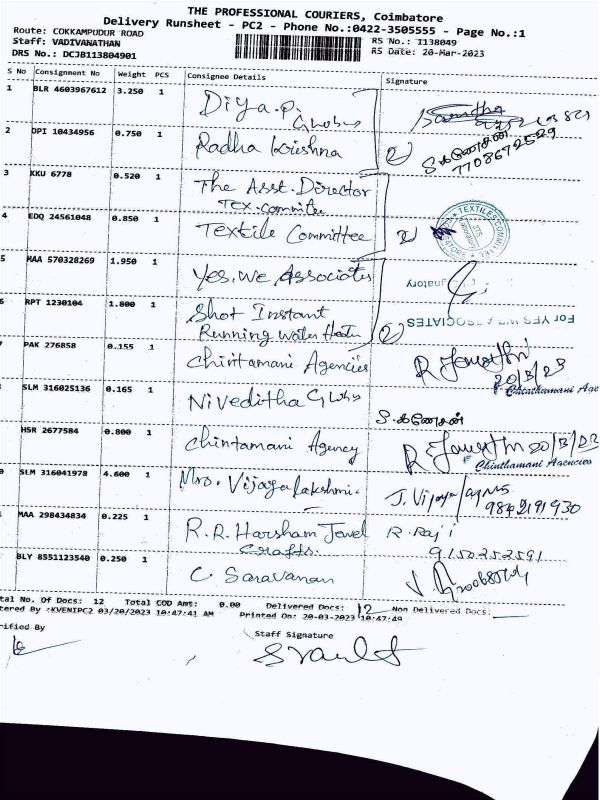 THE PROFESSIONAL COURIERS, Coimbatore
Delivery Runsheet - PC2 - Phone No.:0422-3505555 - Page No.:1
Route: COKKAMPUDUR ROAD
Staff: VADIVANATHAN
DRS No.: DCJB113804901
RS No.: 1138049
RS Date: 20-Mar-2023
S No Consignment No Weight PCS Consignee Details Signature
1 BLR 4603967612 3.250 1 Diya.P.
Globus
2 DPI 10434956 0.750 1 Radha Krishna
ச.கணேசன்
7708672529
3 KKU 6778 0.520 1 The Asst. Director
Tex.committe
4 EDQ 24561048 0.850 1 Textile Committee
TEXTILES COMMITTEE
5 MAA 570328269 1.950 1 Yes.We Associates
For YES WE ASSOCIATES
6 RPT 1230104 1.800 1 Shot Instant
Running Water Heater
PAK 276858 0.155 1 Chintamani Agencies
20/3/23
SLM 316025136 0.165 1 Niveditha Globus ச.கணேசன்
HSR 2677584 0.800 1 Chintamani Agency 20/3/23
Chinthamani Agencies
SLM 316041978 4.600 1 Mrs. Vijayalakshmi.
9842191930
MAA 298434834 0.225 1 R.R. Harsham Jewel
Crafts. R. Raji
9150252591
BLY 8551123540 0.250 1 C Saravanan
tal No. Of Docs: 12 Total COD Amt: 0.00 Delivered Docs: 12 Non Delivered Docs:
tered By :KVENIPC2 03/20/2023 10:47:41 AM Printed On: 20-03-2023 10:47:49
rified By
Staff Signature